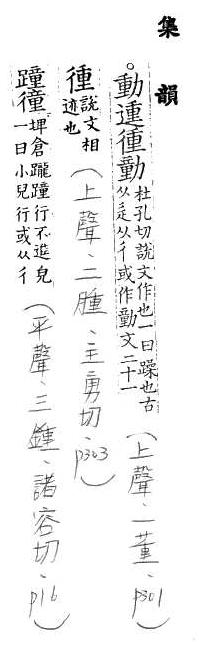 集韻
。動運徸勭杜孔切說文作也一曰躁也古从辵从彳或作勭文二十一(上聲、一董、p301)
徸說文相迹也(上聲、二腫、主勇切、p303)
蹱徸埤倉躘蹱行不進皃一曰小兒行或从彳(平聲、三鍾、諸容切、p16)